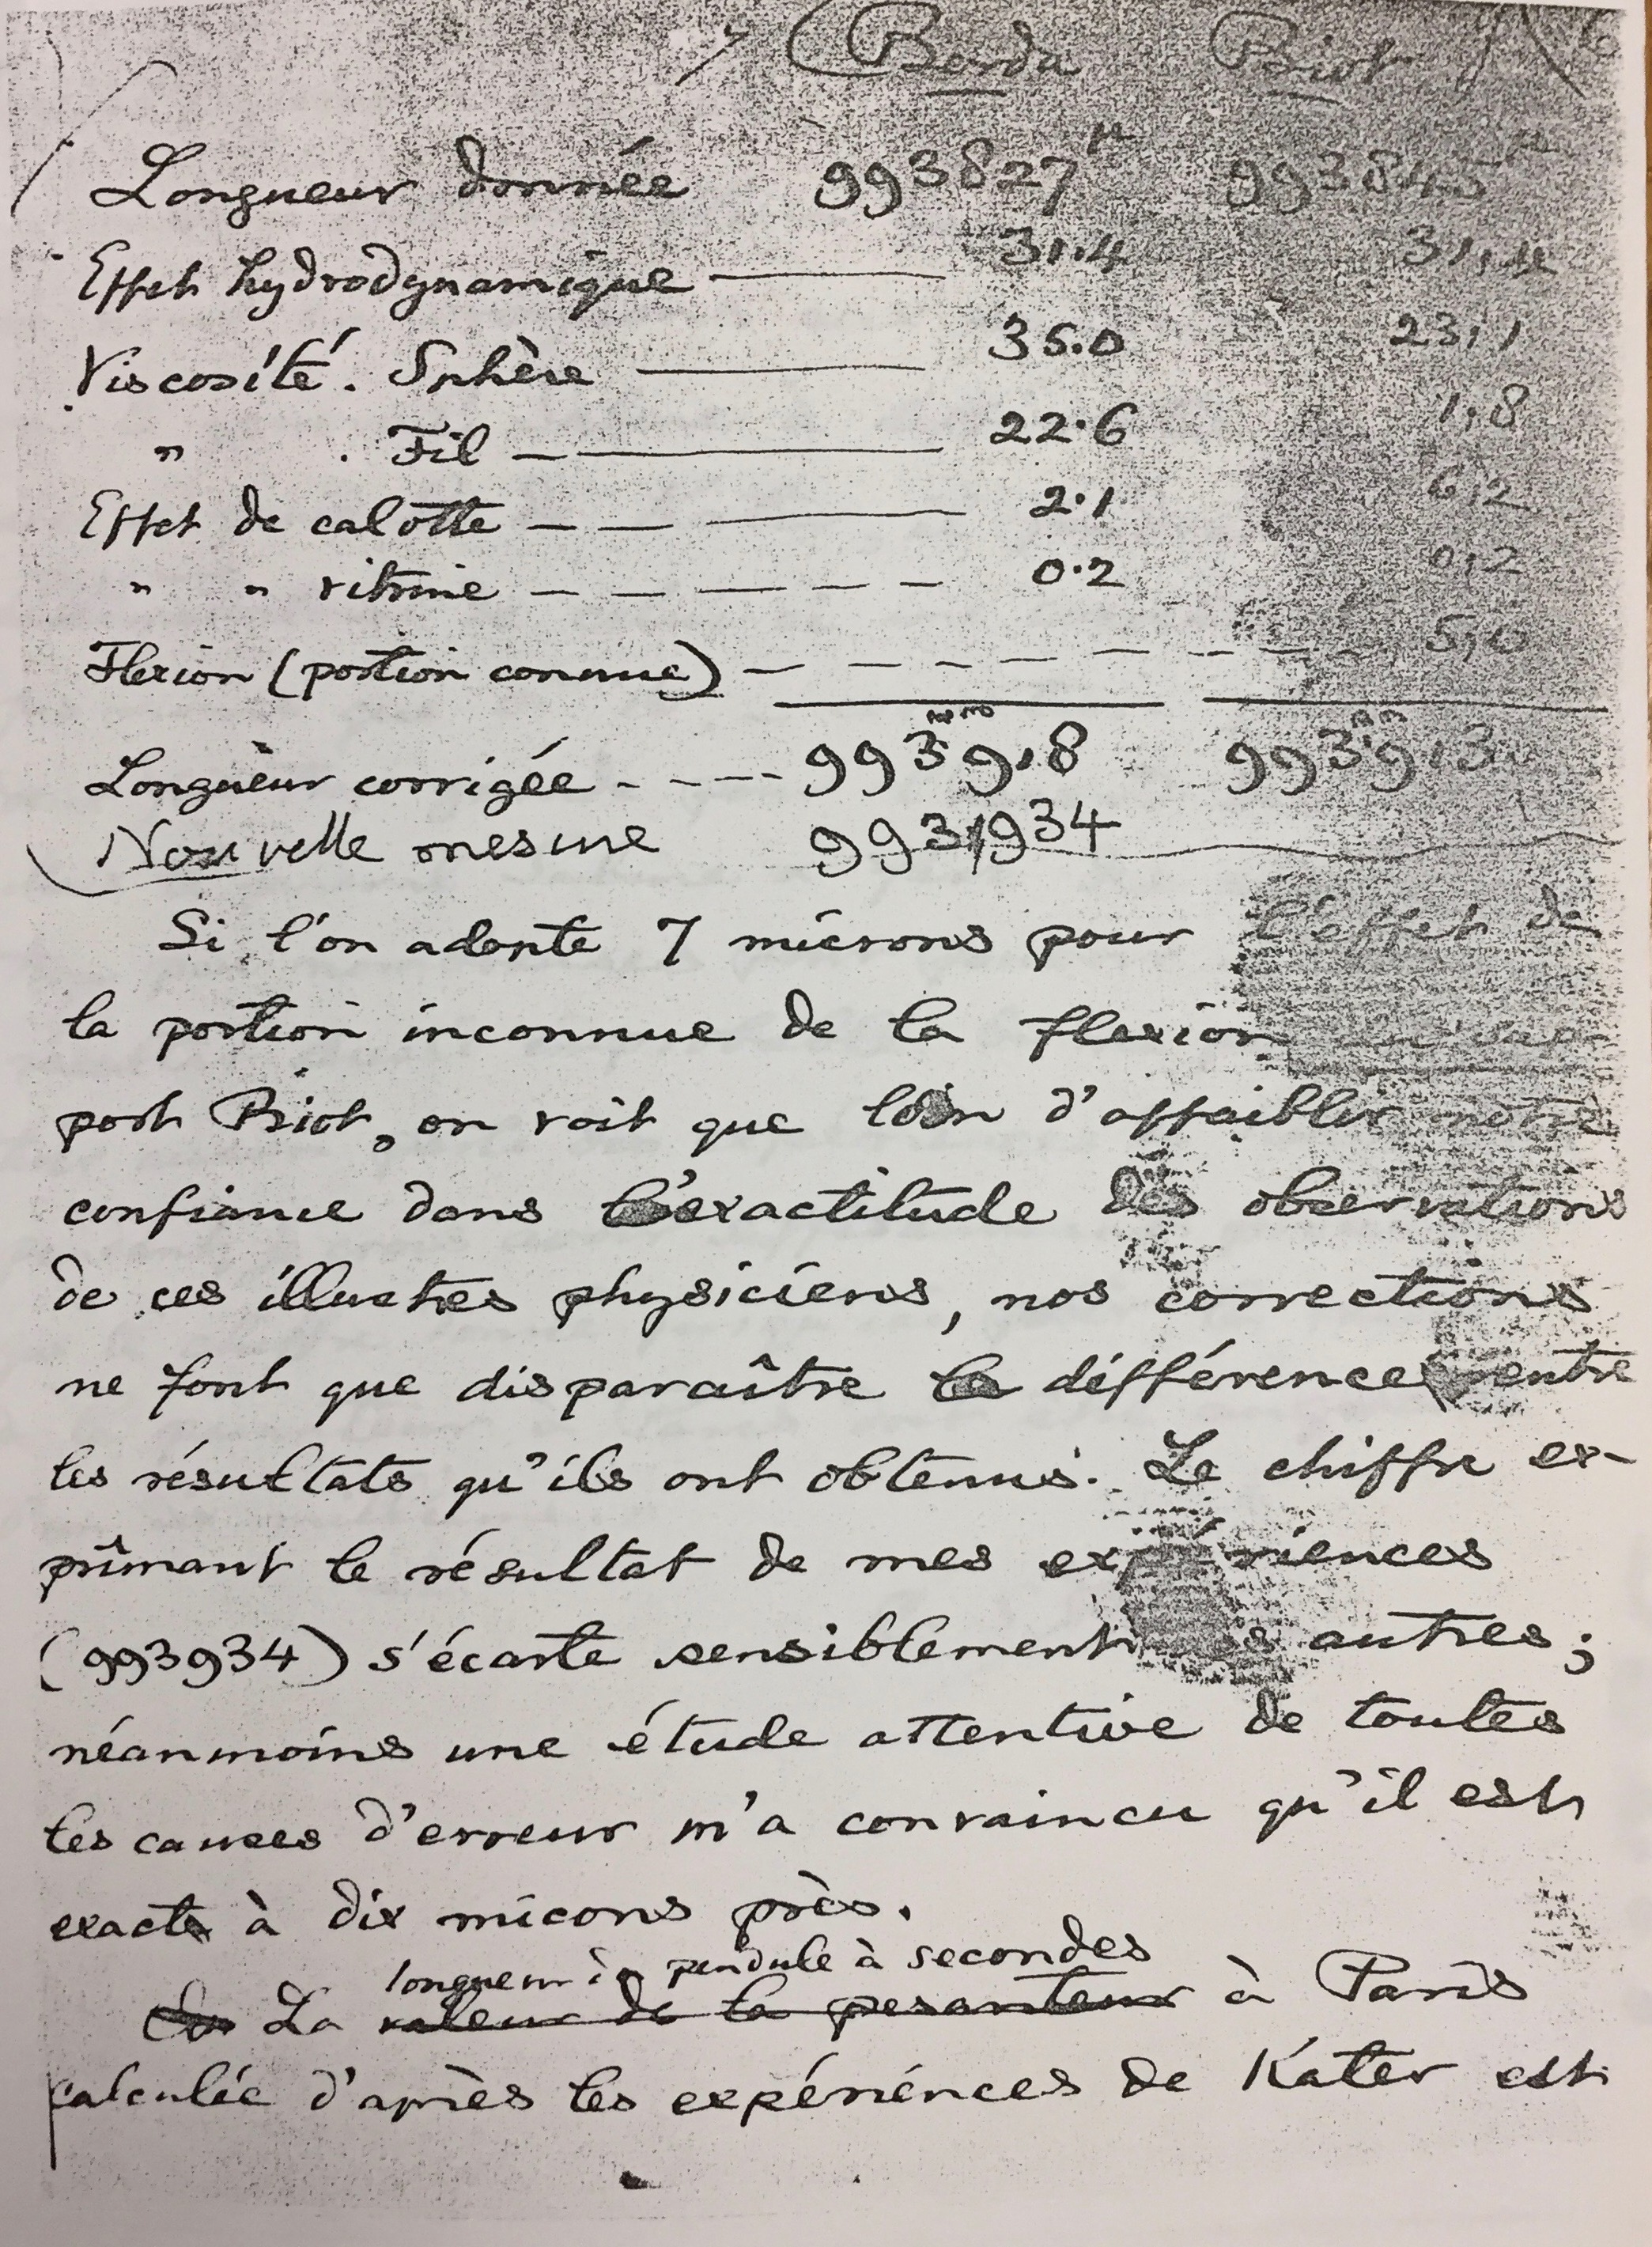 Borda Biot
Longueur donnée 993827μ 993845μ
Effet hydrodynamique 31.4 31,4
Viscosité. Sphère 35.0 23,1
" . Fil 22.6 1,8
Effet de calotte 2.1 6,2
" " vitrine 0.2 0,2
Flexion (portion connue) 5,0
Longueur corrigée 993mm9,8 993mm913
Nouvelle mesure 993,934
Si l'on adopte 7 microns pour l'effet de
la portion inconnue de la flexion
port Biot, on voit que loin d'affaiblir notre
confiance dans l'exactitude des observations
de ces illustres physiciens, nos corrections
ne font que disparaître la différence entre
les résultats qu'ils ont obtenus. Le chiffre ex-
primant le résultat de mes expériences
(993934) s'écarte sensiblement autres;
néanmoins une étude attentive de toutes
les causes d'erreur m'a convaincu qu'il est
exacte à dix micons près.
longueur pendule à secondes
La valeur de la pesanteur à Paris
calculée d'après les expériences de Kater est